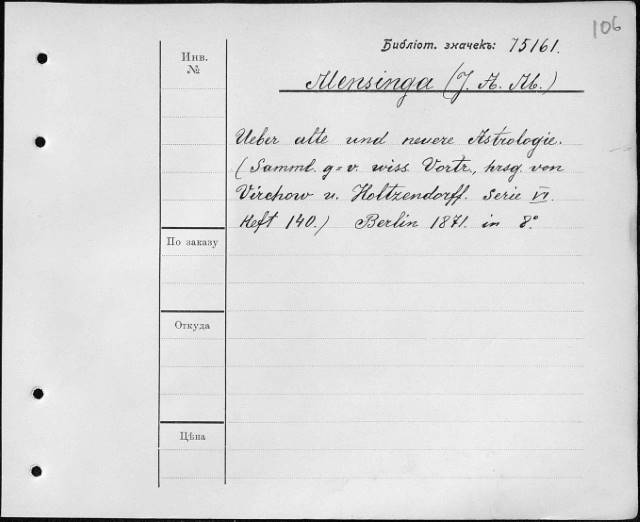 106
Библіот. значекъ: 75161.
Инв.
№
Mensinga (J. A. M.)
Ueber alte und neuere Astrologie.
(Samml. g=v. wiss. Vortr., hrsg. von
Virchow u. Holtzendorff. Serie VI.
Heft 140.) Berlin 1871. in 8°
По заказу
Откуда
Цѣна